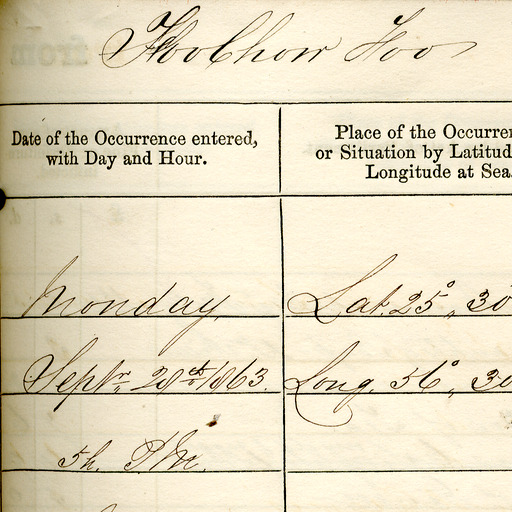 FooChow Foo
Date of the Occurrence entered,
with Day and Hour.
Place of the Occurren
or Situation by Latitud
Longitude at Sea.
Monday
Lat. 25°,, 30
Septr. 28th 1863.
Long. 56°,, 30
5h. P.M.